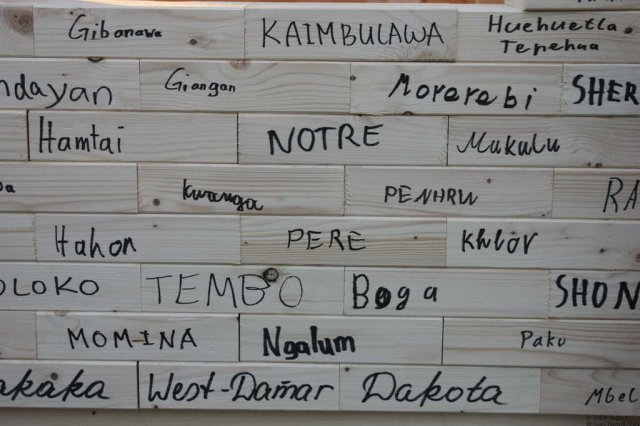 Gibanawa KAIMBULAWA Huehuetla
Tepehua
ndayan Giangan Morerebi SHER
Hamtai NOTRE Mukulu
Kwanga PENHRU RA
Hahon PERE Khlor
OLOKO TEMBO Boga SHON
MOMINA Ngalum Paku
akaka West-Damar Dakota Mbel